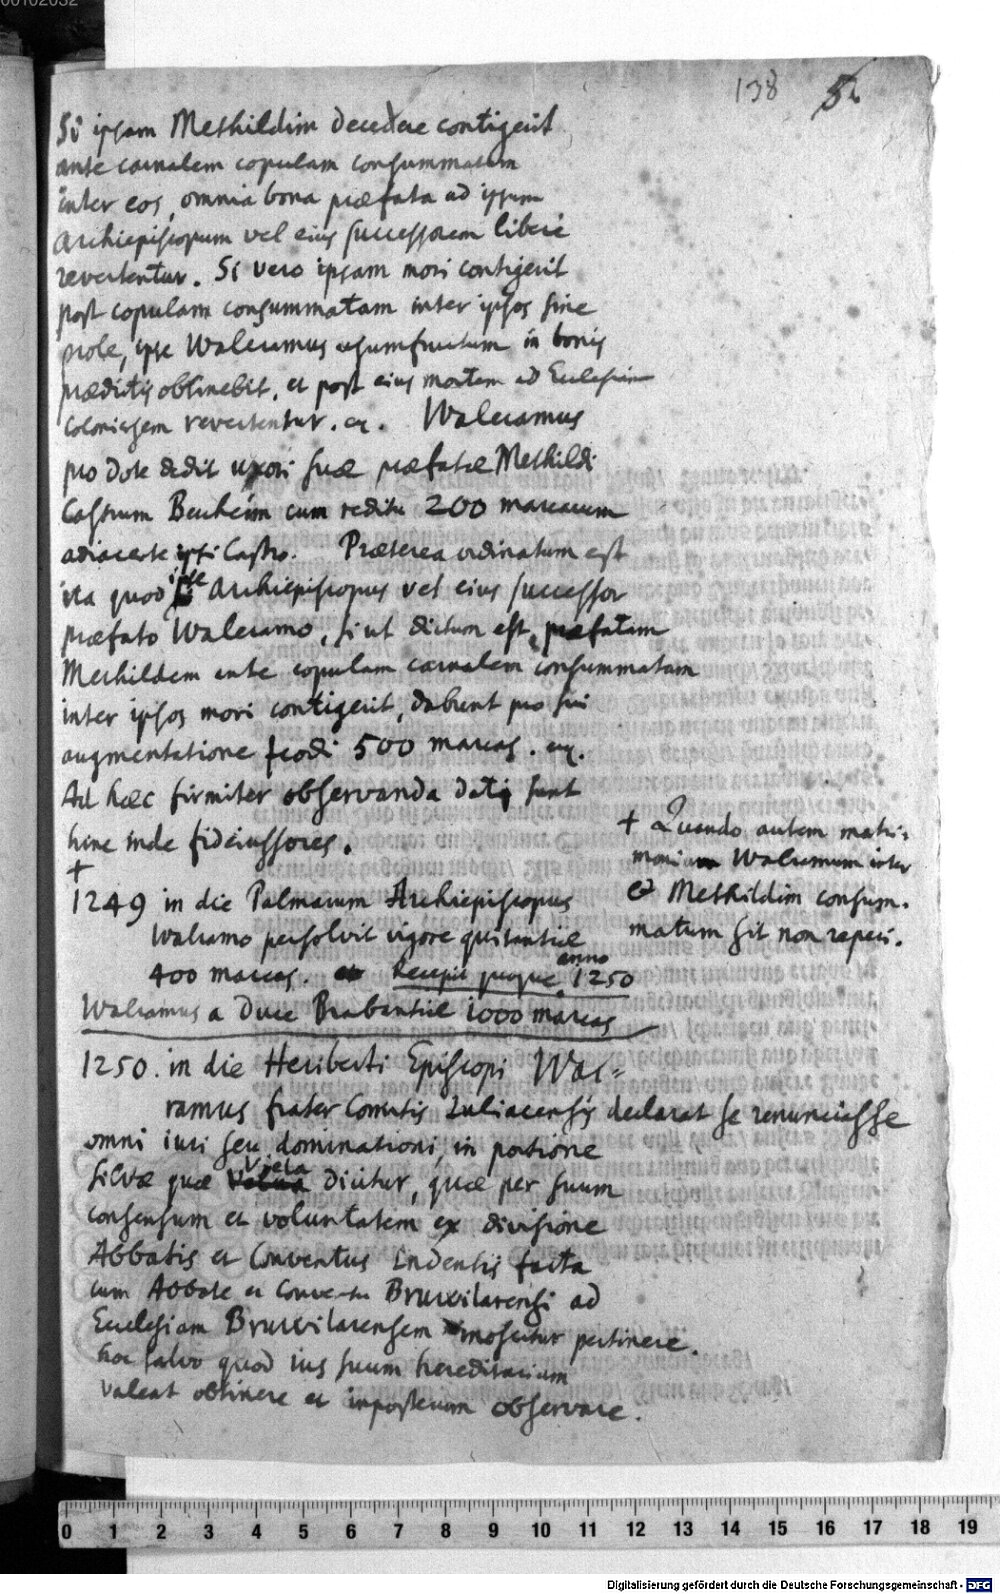 138 52
Si ipsam Methildim decedere contigerit
ante carnalem copulam consummatam
inter eos, omnia bona præfata ad ipsum
Archiepiscopum vel eius successorem liberè
revertentur. Si vero ipsam mori contigerit
post copulam consummatam inter ipsos sine
prole, ipse Walramus usumfructum in bonis
prædictis obtinebit, et post eius mortem ad Ecclesiam
Coloniensem revertentur. Walramus
pro dote dedit uxori suæ præfatæ Methildi
Castrum Berheim cum reditu 200 marcarum
adiacente ipsi Castro. Præterea ordinatum est
ita quod ipse Archiepiscopus vel eius successor
præfato Walramo, si ut dictum est, præfatam
Methildem ante copulam carnalem consummatam
inter ipsos mori contigerit, dabunt pro sui
augmentatione feodi 500 marcas.
Ad hæc firmiter observanda dati sunt
hinc inde fideiussores.
+
+ Quando autem matri-
monium Walramum inter
et Methildim consum-
matum sit non reperi.
1249 in die Palmarum Archiepiscopus
Walramo persolvit vigore quitantiæ
400 marcas. Recepit quoque anno 1250
Walramus a Duce Brabantiæ 1000 marcas
1250. in die Heriberti Episcopi Wal=
ramus frater Comitis Iuliacensis declarat se renunciasse
omni iuri seu dominationi in portione
silvæ quæ Viela dicitur, quæ per suum
consensum et voluntatem ex divisione
Abbatis et Conventus Indensis facta
cum Abbate et Conventu Bruwilarensi ad
Ecclesiam Bruwilarensem noscitur pertinere.
hoc salvo quod ius suum hereditarium
valeat obtinere et imposterum observare.
0 1 2 3 4 5 6 7 8 9 10 11 12 13 14 15 16 17 18 19
Digitalisierung gefördert durch die Deutsche Forschungsgemeinschaft - DFG